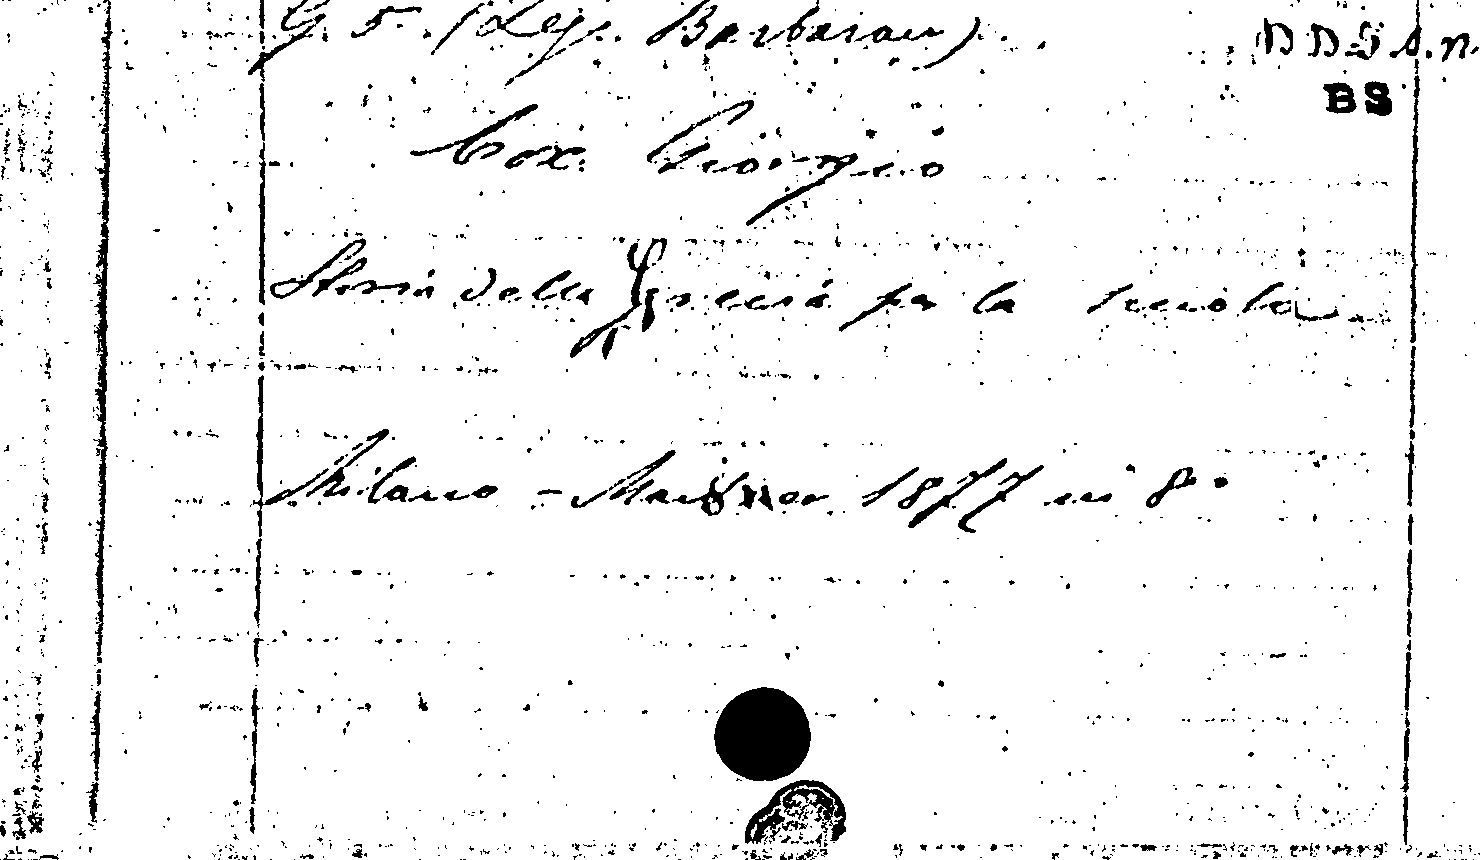 G. 5. (Leg. Barbarau)
BS
Cox. Giorgio
Storia della Grecia per la scuola
Milano - 1877 in 8°